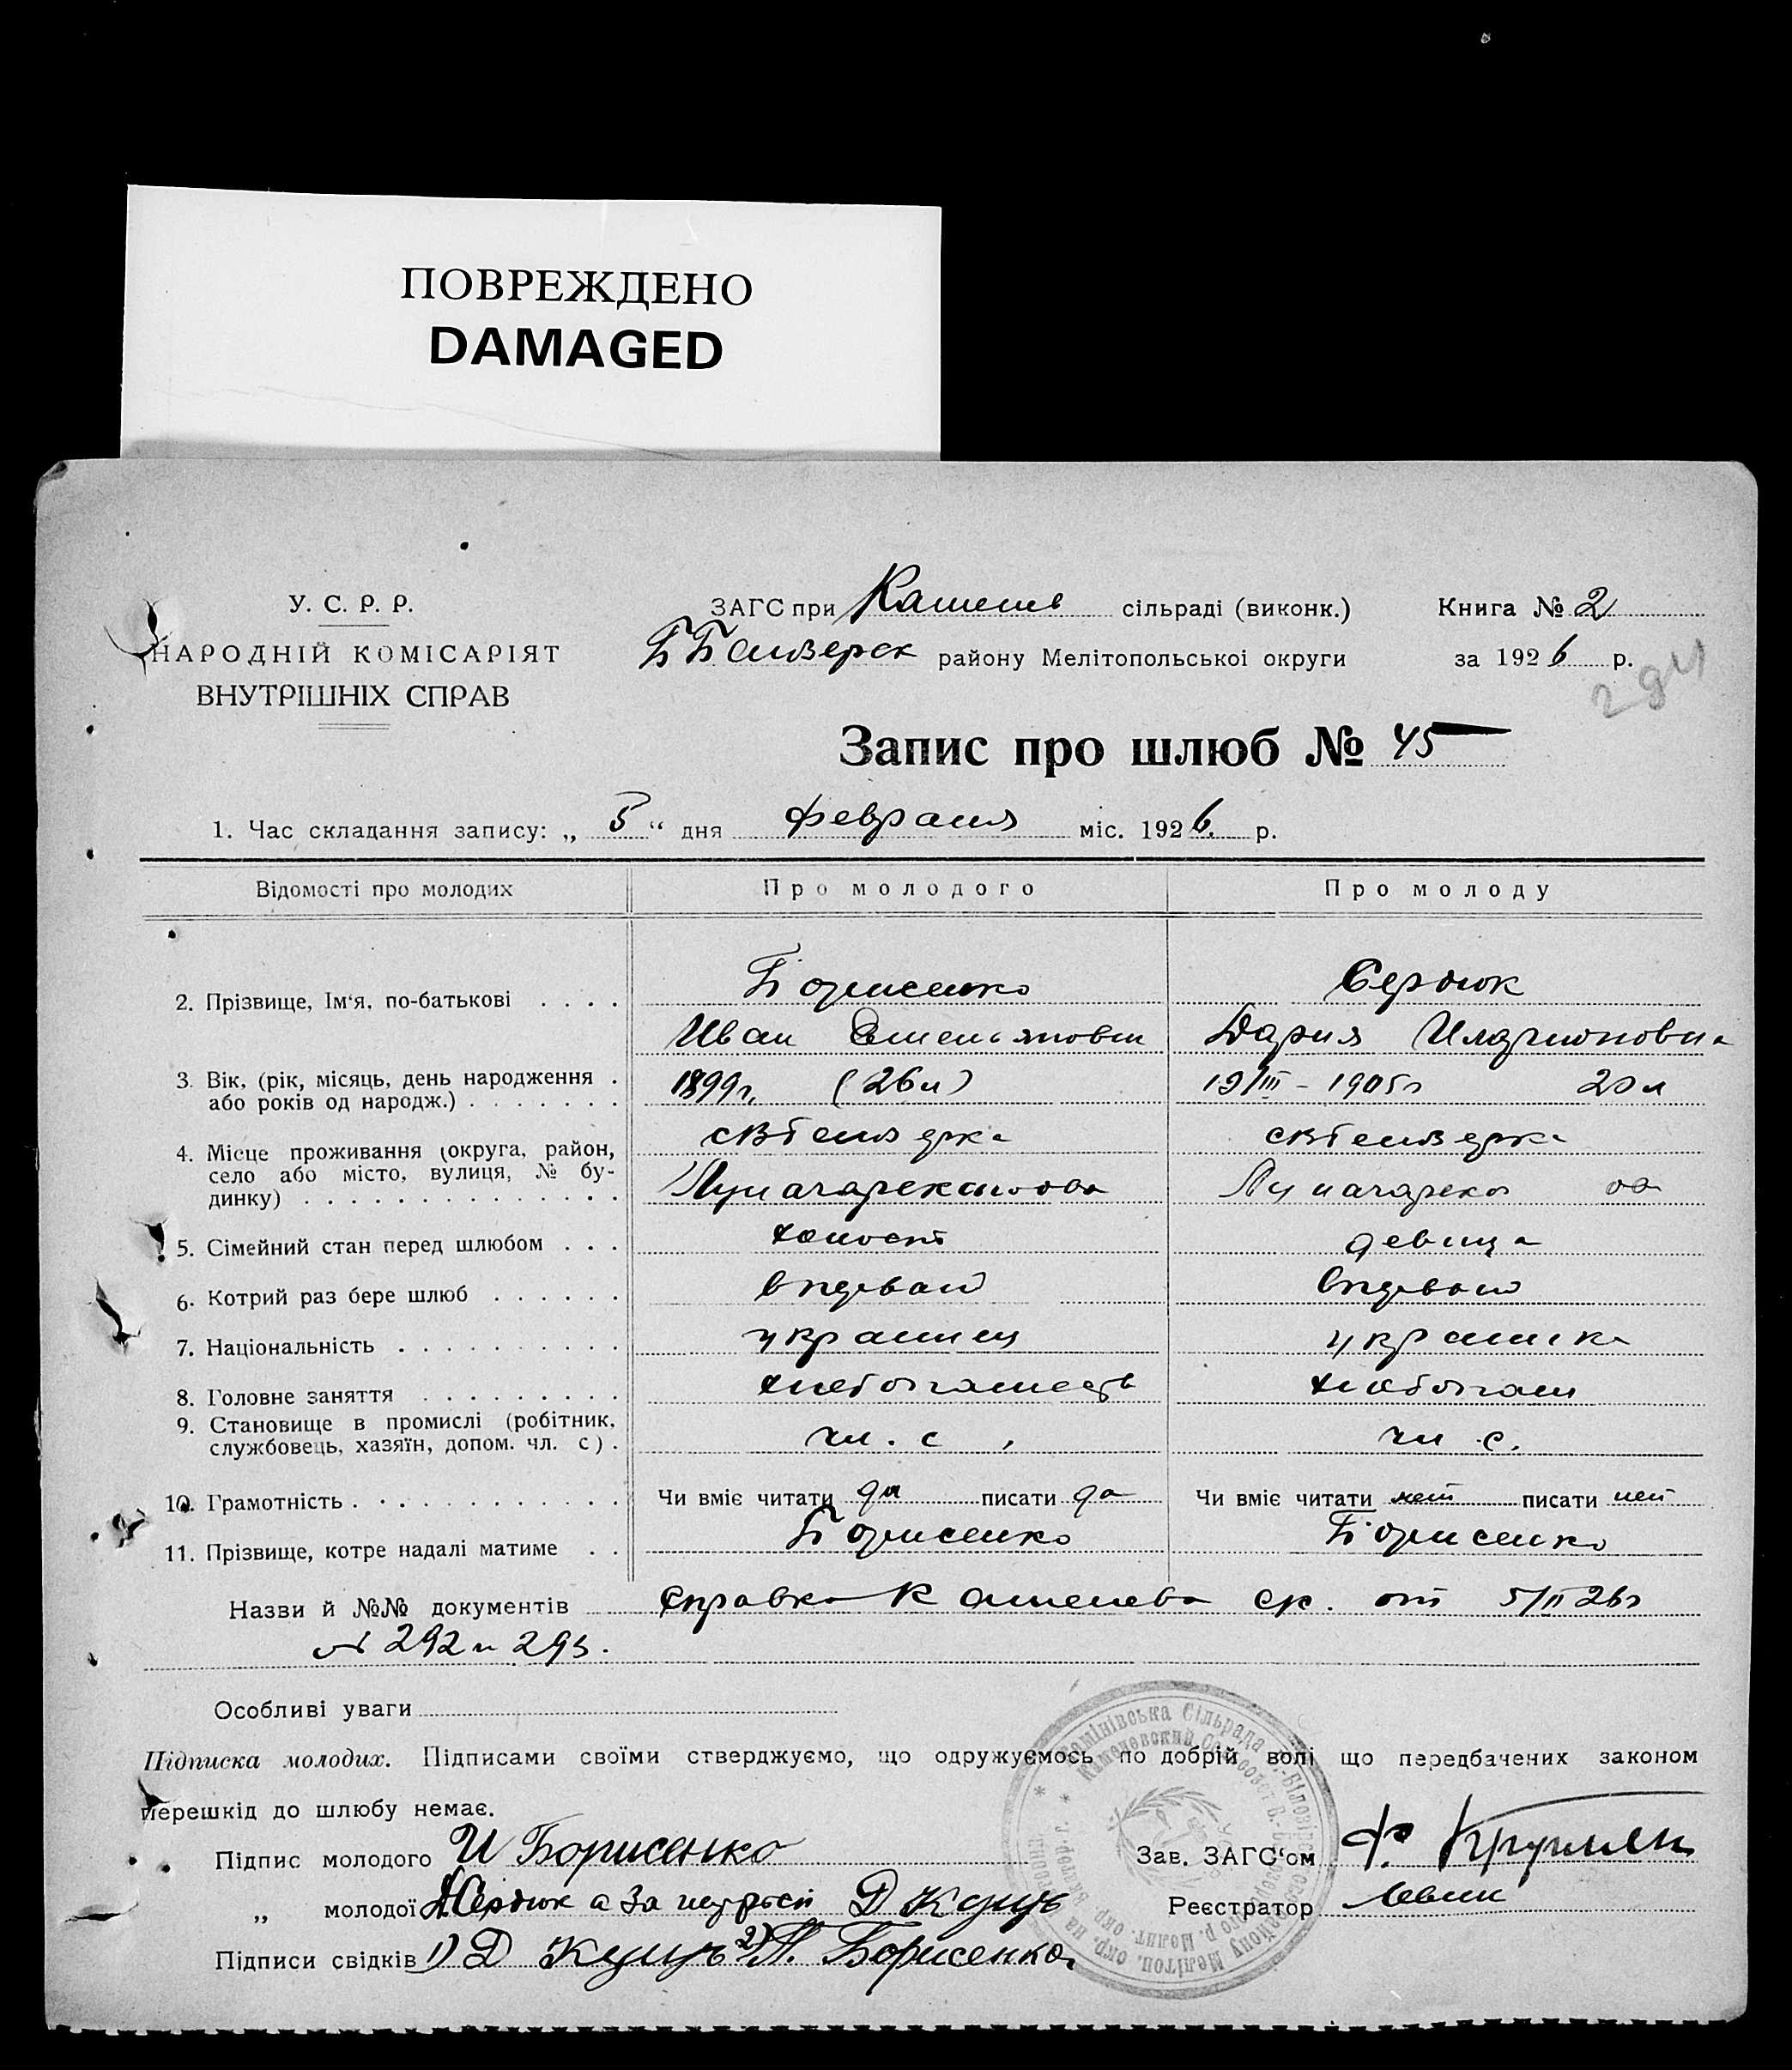 ПОВРЕЖДЕНО
DAMAGED
У. С. Р. Р.
НАРОДНІЙ КОМІСАРІЯТ
ВНУТРІШНІХ СПРАВ
ЗАГС при Каменев сільраді (виконк.) Книга № 2
Б Белозерск району Мелітопольської округи за 1926 р.
Запис про шлюб № 45
1. Час складання запису: „ 5 “ дня февраля міс. 1926. р.
Відомості про молодих Про молодого Про молоду
2. Прізвище, Ім'я, по-батькові Борисенко Сердюк
Иван Емельянович Дария Иларионовна
3. Вік, (рік, місяць, день народження 1899 г. (26 л) 19/III - 1905 г 20 л
або років од народж.)
4. Місце проживання (округа, район,
село або місто, вулиця, № бу-
динку) Луначарск Луначарск
5. Сімейний стан перед шлюбом холост девица
6. Котрий раз бере шлюб впервый впервый
7. Національність украинец украинка
8. Головне заняття хлебопашець хлебопаш
9. Становище в промислі (робітник, чл. с. чл с.
службовець, хазяїн, допом. чл. с) .
10. Грамотність Чи вміє читати да писати да Чи вміє читати нет писати нет
11. Прізвище, котре надалі матиме Борисенко Борисенко
Назви й №№ документів справка Каменева ск. от 5/II 26 г
№ 292 и 293.
Особливі уваги
Підписка молодих. Підписами своїми стверджуємо, що одружуємось по добрій волі що передбачених законом
перешкід до шлюбу немає.
Підпис молодого И Борисенко Зав. ЗАГС'ом Ф.
„ молодої Д Сердюк а за Д Куць Реєстратор Левин
Підписи свідків 1) Д Куць 2) П. Борисенко